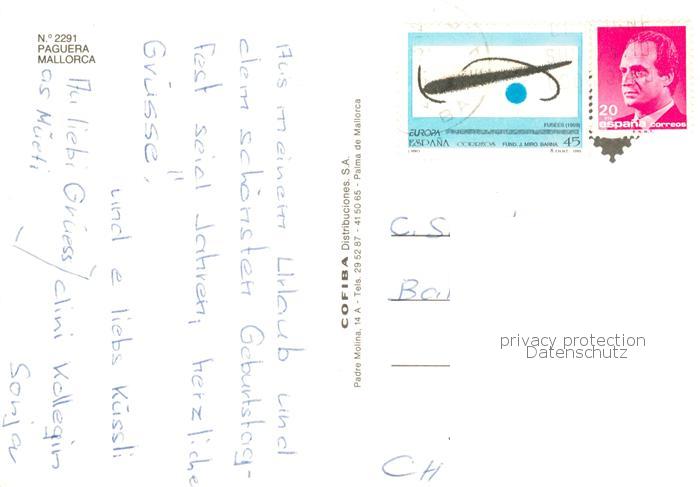 N.º 2291
PAGUERA
MALLORCA
Aus meinem Urlaub und
dem schönsten Geburtstag-
fest seid Jahren, herzliche
Grüsse,
und e liebs Küssli
Au liebi Grüess / dini Kollegin
as Müeti
Sonja
COFIBA Distribuciones, S.A.
Padre Molina, 14 A - Tels. 29 52 87 - 41 50 65 - Palma de Mallorca
FUSEES (1959)
EUROPA
ESPAÑA CORREOS FUND. J. MIRO. BARNA. 45
20
españa correos
C. S.
Bal
CH
privacy protection
Datenschutz